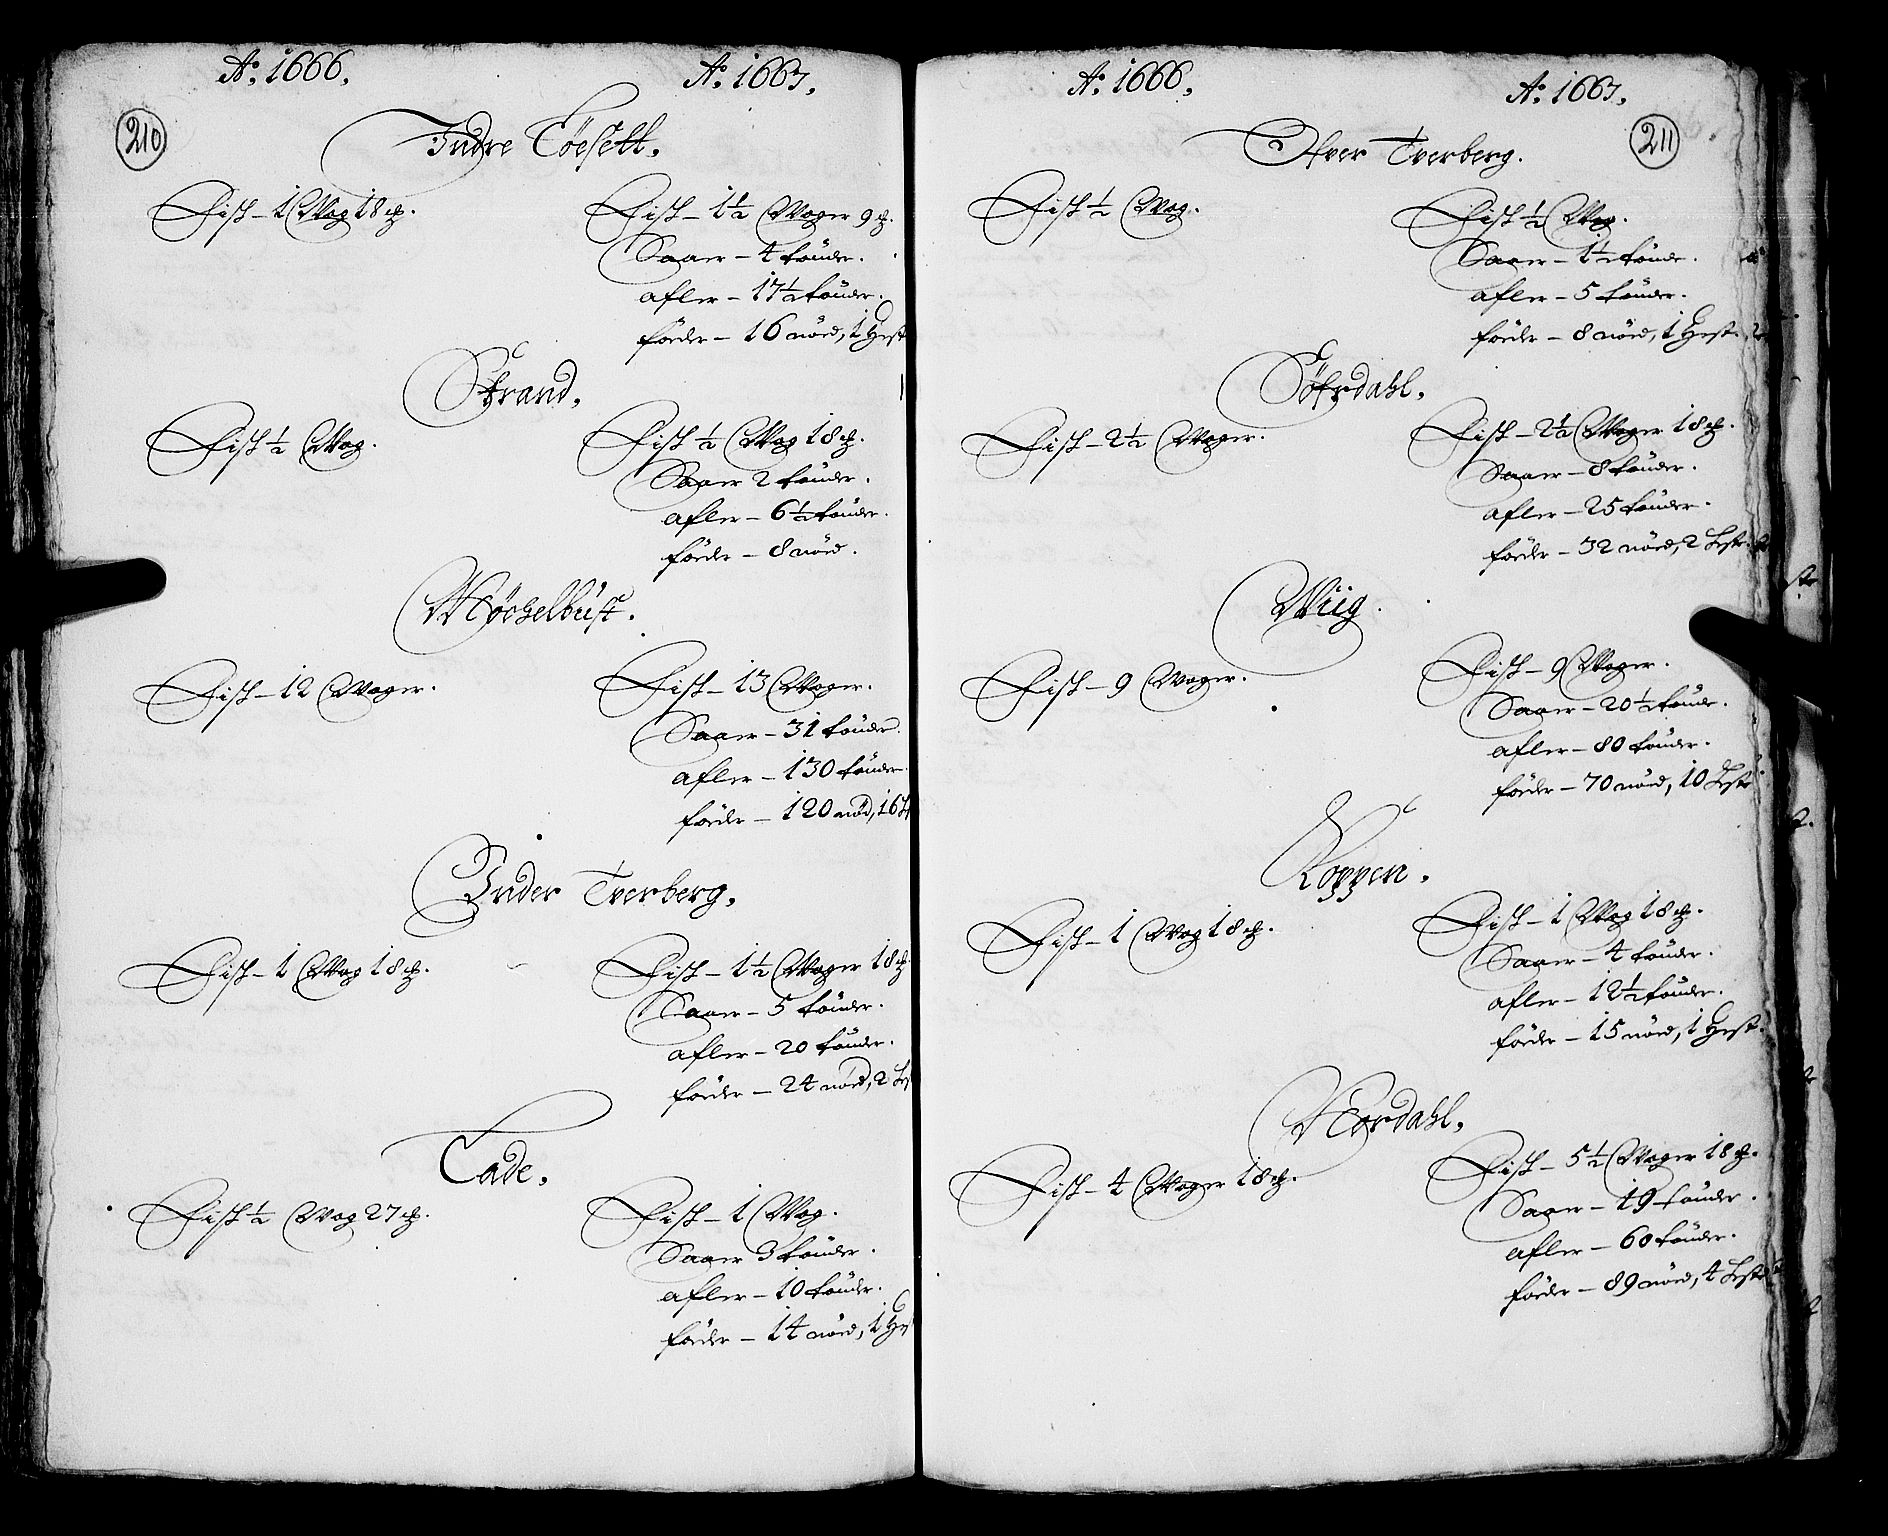 210
Ao. 1666.
Ao. 1667.
Indre Töesett.
Fisk – 1 Wog 18 ℔.
Fisk – 1½ Woger 9 ℔.
Saaer – 4 tönder.
afler – 17½ tönder.
föeder – 16 nöed, 1 Hest
Strand.
Fisk ½ Wog.
Fisk ½ Wog 18 ℔.
Saaer 2 tönder.
afler – 6½ tönder.
föeder – 8 nöed.
Möchelbust.
Fisk – 12 Woger.
Fisk – 13 Woger.
Saaer – 31 tönder.
afler – 130 tönder.
föeder – 120 nöd, 16
Inder Tverberg.
Fisk – 1 Wog 18 ℔.
Fisk – 1½ Woger 18 ℔.
Saaer – 5 tönder.
afler – 20 tönder.
föeder – 24 nöed, 2
Lade.
Fisk ½ Wog 27 ℔.
Fisk – 1 Wog.
Saaer 3 tönder.
afler – 10 tönder.
föeder – 14 nöed, 1
211
Ao. 1666.
Ao. 1667.
Ofver Tverberg.
Fisk ½ Wog.
Fisk ½ Wog.
Saaer – 1½ tönde.
afler – 5 tönder.
föeder – 8 nöed, 1 Hest.
Söfrdahl.
Fisk – 2½ Woger.
Fisk – 2½ Woger 18 ℔.
Saaer – 8 tönder.
afler – 25 tönder.
föeder – 32 nöed, 2 Heste.
Wiig.
Fisk – 9 Woger.
Fisk – 9 Woger.
Saaer – 20½ tönde.
afler – 80 tönder.
föeder – 70 nöed, 10 Heste
Koppen.
Fisk – 1 Wog 18 ℔.
Fisk – 1 Wog 18 ℔.
Saaer – 4 tönder.
afler – 12½ tönder.
föeder – 15 nöed, 1 Hest.
Nordahl.
Fisk – 4 Woger 18 ℔.
Fisk – 5½ Woger 18 ℔.
Saaer – 19 tönder.
afler – 60 tönder.
föeder – 89 nöed, 4 Heste